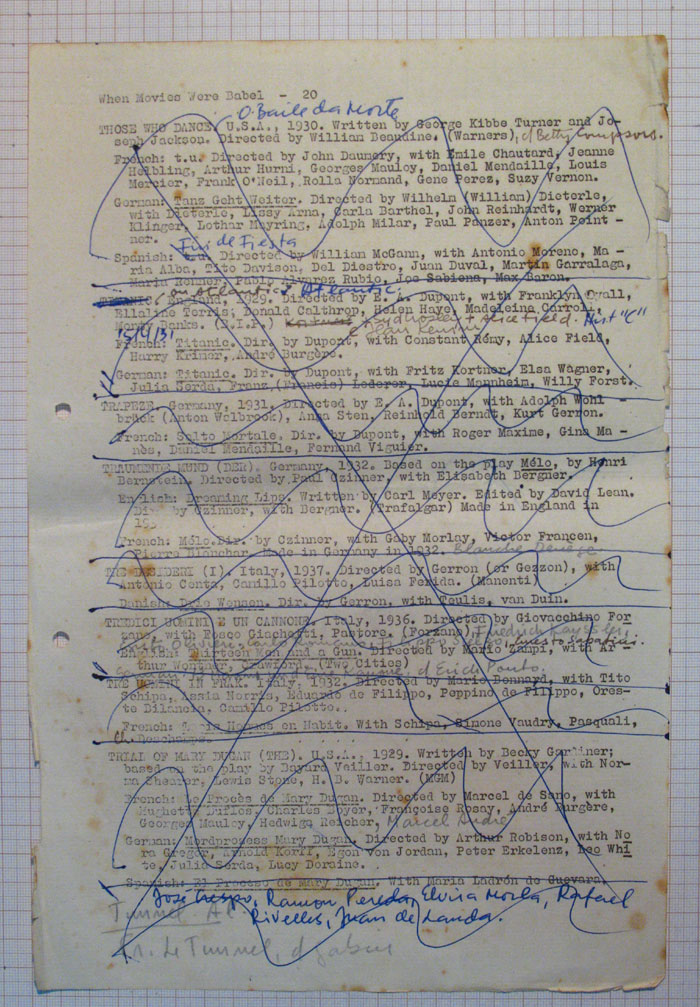 When Movies Were Babel - 20
O Baile da Morte
THOSE WHO DANCE. U.S.A., 1930. Written by George Kibbe Turner and Jo-
seph Jackson. Directed by William Beaudine. (Warners), c/ Betty Compson.
French: t.u. Directed by John Daumery, with Emile Chautard, Jeanne
Helbling, Arthur Hurni, Georges Mauloy, Daniel Mendaille, Louis
Mercier, Frank O'Neil, Rolla Normand, Gene Perez, Suzy Vernon.
German: Tanz Geht Weiter. Directed by Wilhelm (William) Dieterle,
with Dieterle, Lissy Arna, Carla Barthel, John Reinhardt, Werner
Klinger, Lothar Mayring, Adolph Milar, Paul Panzer, Anton Point -
ner.
Fin de Fiesta
Spanish: t.u. Directed by William McGann, with Antonio Moreno, Ma -
ria Alba, Tito Davison, Del Diestro, Juan Duval, Martin Garralaga,
Maria Pablo Alvarez Rubio, Joe Sabiena, Max Baron.
Atlantic
England, 1929. Directed by E. A. Dupont, with Franklyn Dyall,
Ellaline Terris, Donald Calthrop, Helen Haye, Madeleine Carroll,
Monty Banks. (B.I.P.) Alice Field. Hist "C"
15/4/31
French: Titanic. Dir. by Dupont, with Constant Rémy, Alice Field,
Harry Krimer, André Burgère.
German: Titanic. Dir. by Dupont, with Fritz Kortner, Elsa Wagner,
Julia Serda, Franz (Francis) Lederer, Lucie Mannheim, Willy Forst.
TRAPEZE. Germany, 1931. Directed by E. A. Dupont, with Adolph Wohl -
brück (Anton Welbrook), Anna Sten, Reinhold Berndt, Kurt Gerron.
French: Salto Mortale. Dir. by Dupont, with Roger Maxime, Gina Ma -
nès, Daniel Mendaille, Fernand Viguier.
TRAUMENDE MUND (DER). Germany, 1932. Based on the play Mélo, by Henri
Bernstein. Directed by Paul Czinner, with Elisabeth Bergner.
English: Dreaming Lips. Written by Carl Meyer. Edited by David Lean.
Dir. by Czinner, with Bergner. (Trafalgar) Made in England in
193
French: Mélo. Dir. by Czinner, with Gaby Morlay, Victor Francen,
Pierre Blanchar. Made in Germany in 1932.
TRE DESIDERI (I). Italy, 1937. Directed by Gerron (or Gezzon), with
Antonio Centa, Camillo Pilotto, Luisa Ferida. (Manenti)
Danish: Drie Wennen. Dir. by Gerron, with Teulis, van Duin.
TREDICI UOMINI E UN CANNONE. Italy, 1936. Directed by Giovacchino For
zano, with Fosco Giachetti, Pastore. (Forzano), Friedrich
English: Thirteen Men and a Gun. Directed by Mario Zampi, with Ar -
thur Wontner, Crawford. (Two Cities)
d'Erich Ponto.
TRE UOMINI IN FRAK. Italy, 1932. Directed by Mario Bonnard, with Tito
Schipa, Assia Norris, Eduardo de Filippo, Peppino de Filippo, Ores-
te Bilancia, Camillo Pilotto..
French: Trois Hommes en Habit. With Schipa, Simone Vaudry, Pasquali,
Ch. Deschamps.
TRIAL OF MARY DUGAN (THE). U.S.A., 1929. Written by Becky Gardiner;
based on the play by Bayard Veiller. Directed by Veiller, with Nor-
ma Shearer, Lewis Stone, H. B. Warner. (MGM)
French: Le Procès de Mary Dugan. Directed by Marcel de Sano, with
Hughette Duflos, Charles Boyer, Françoise Rosay, André Burgère,
Georges Mauloy, Hedwiga Reicher, Marcel André
German: Mordprozess Mary Dugan. Directed by Arthur Robison, with No
ra Gregor, Arnold Korff, Egon von Jordan, Peter Erkelenz, Leo Whi
te, Julia Serda, Lucy Doraine.
Spanish: El Proceso de Mary Dugan. With Maria Ladrón de Guevara,
José Crespo, Ramon Pereda, Elvira Morla, Rafael
Rivelles, Juan de Landa.
Tunnel
Fr. Le Tunnel, c/ Gabin